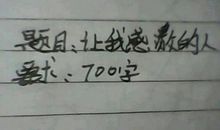 题目:让我感激的人
要求:700字